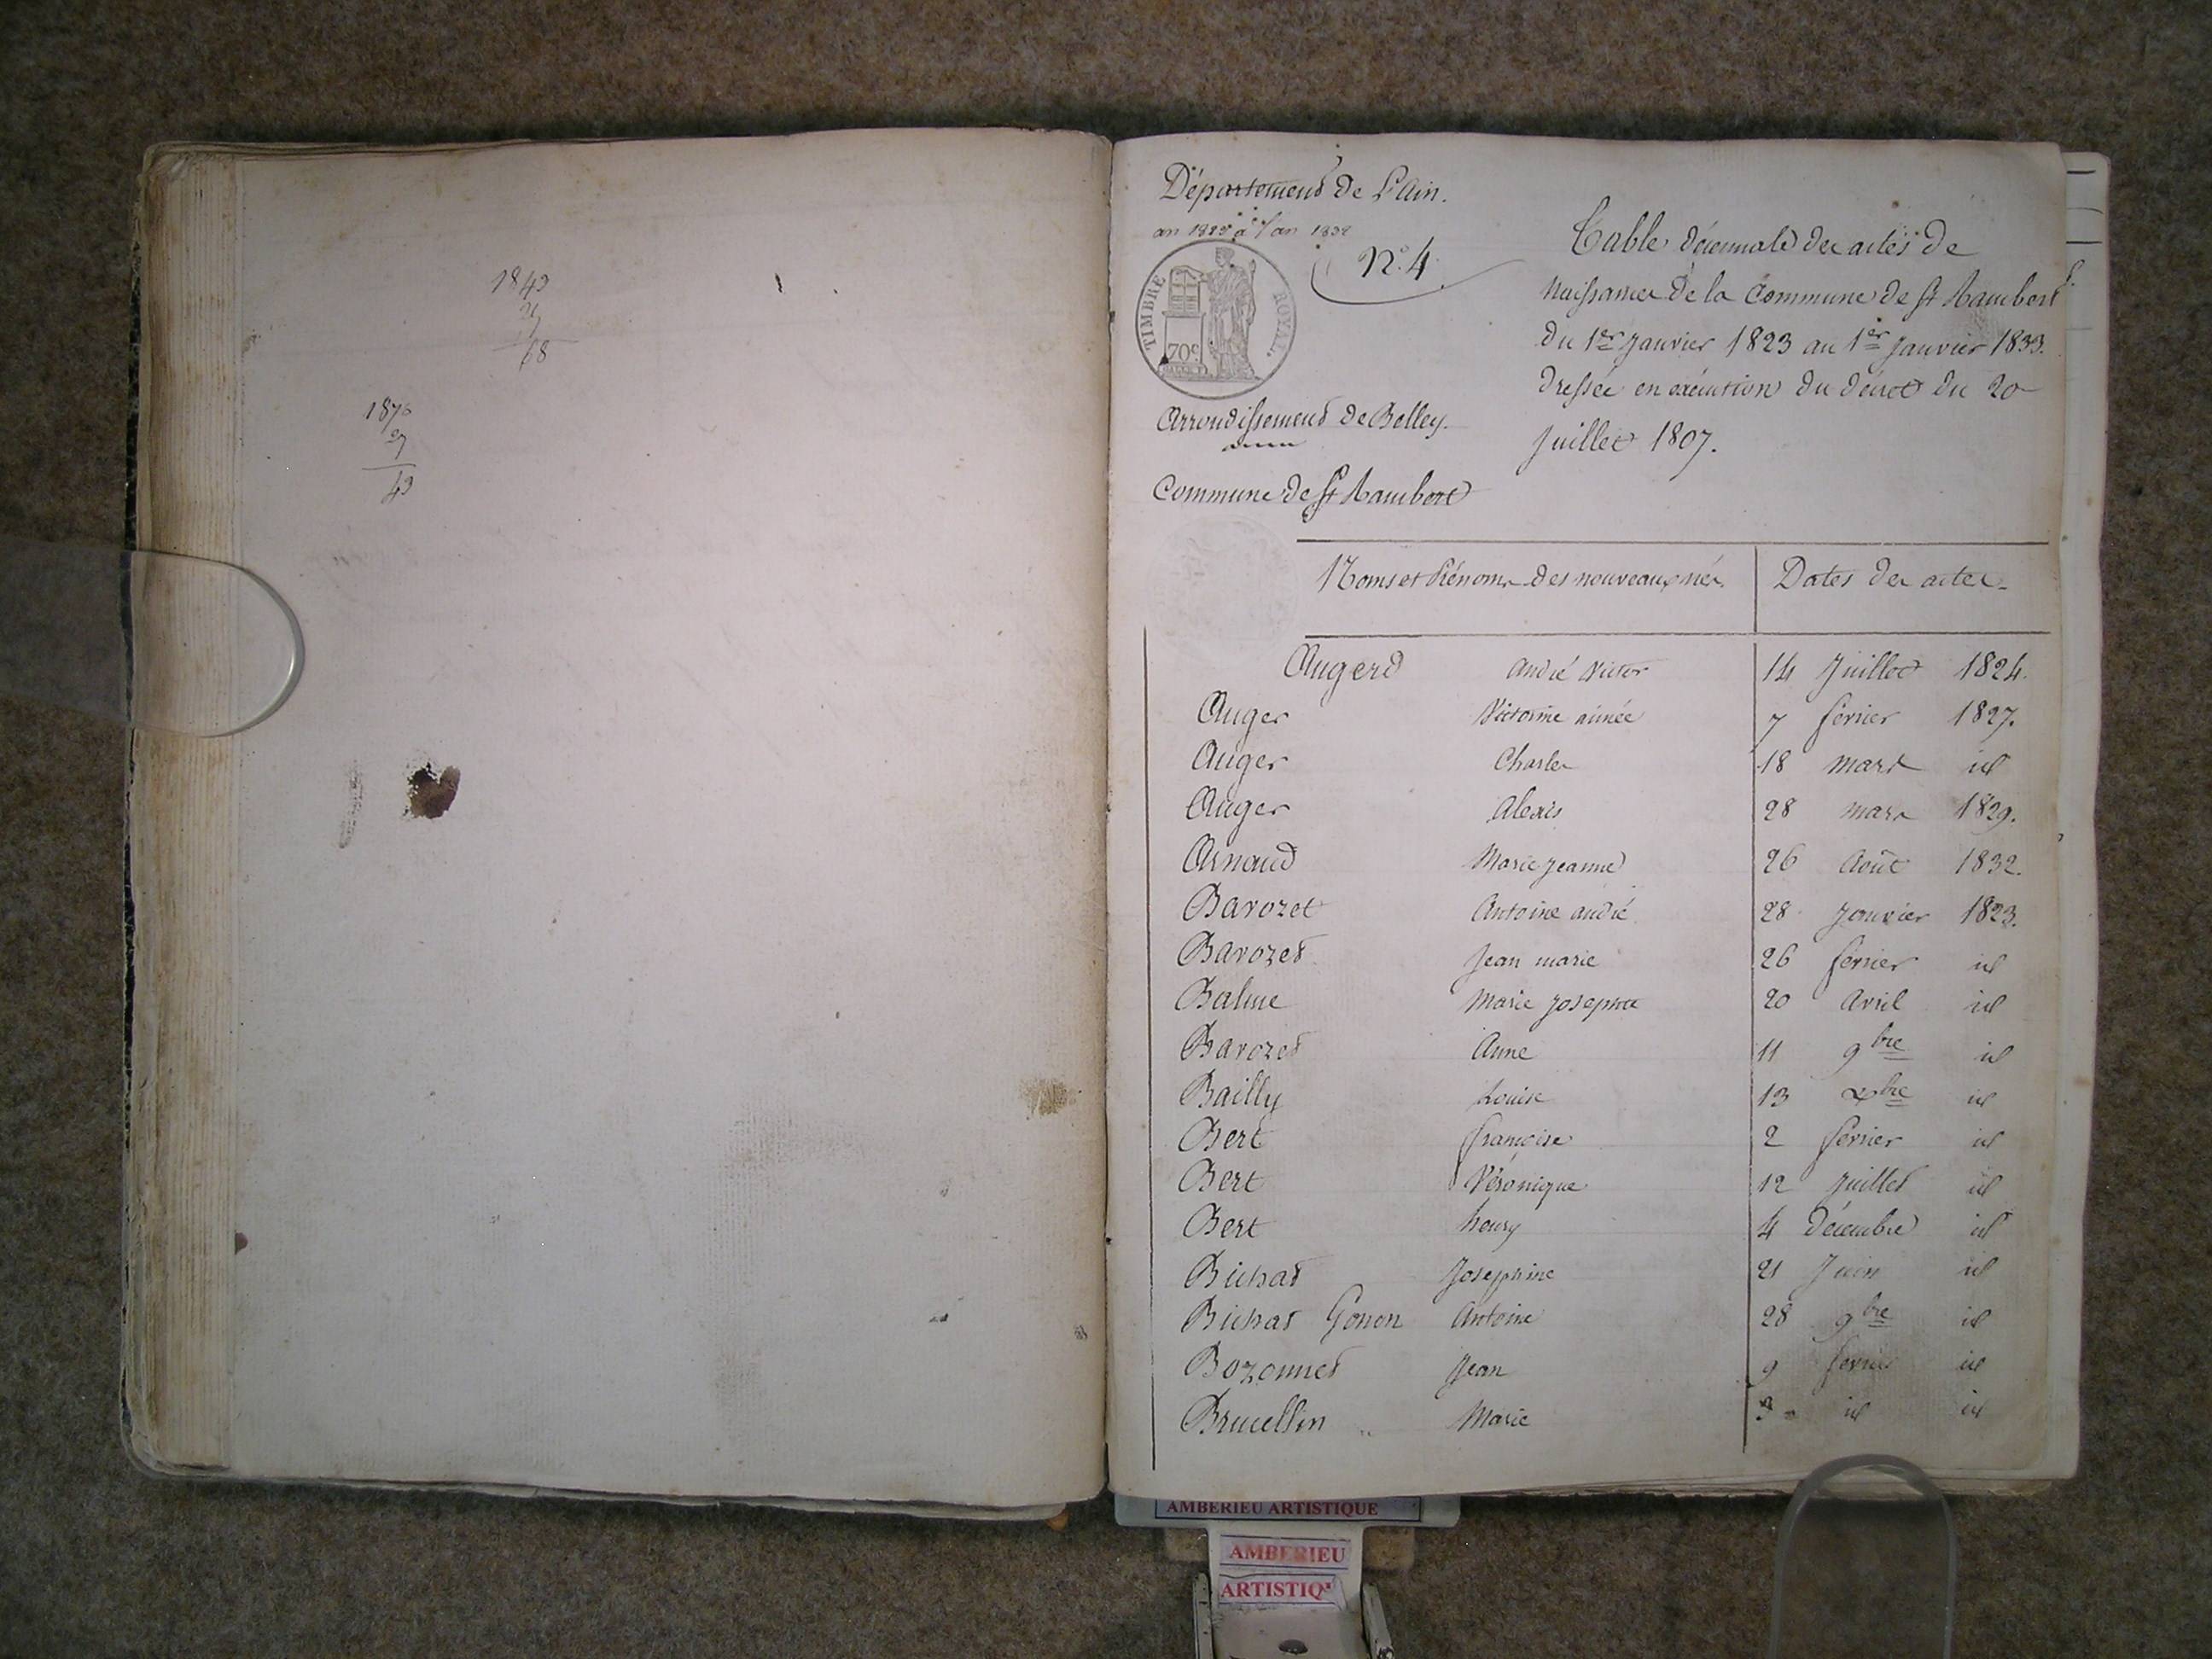 1843
68
1870
27
43
Département de l'Ain.
an 1823 à l'an 1832
N.° 4
TIMBRE ROYAL.
70c
Arrondissement de Belley.
Commune de St Rambert
Table décennale des actes de
Naissances de la Commune de St Rambert
du 1er Janvier 1823 au 1er Janvier 1833.
dressée en exécution du décret du 20
Juillet 1807.
Noms et Prénoms des nouveaux nés. Dates des actes
Augerd André Victor 14 Juillet 1824.
Auger Victorine aimée 7 février 1827.
Auger Charles 18 mars id
Auger Alexis 28 mars 1829.
Arnaud Marie Jeanne 26 Août 1832.
Barozet Antoine andré 28 Janvier 1823.
Barozet Jean marie 26 février id
Balme Marie Josephte 20 Avril id
Barozet Anne 11 9bre id
Bailly Louise 13 Xbre id
Bert françoise 2 février id
Bert Véronique 12 Juillet id
Bert henry 4 décembre id
Bichat Josephine 21 Juin id
Bichat Gonon Antoine 28 9bre id
Bozonnet Jean 9 février id
Brucellin Marie id id
AMBERIEU ARTISTIQUE
AMBERIEU
ARTISTIQ